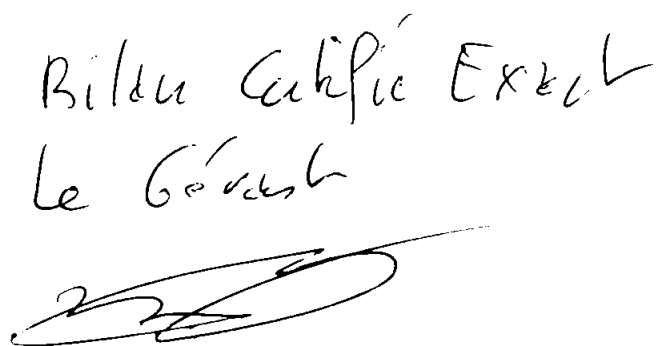 Bilan Certifié Exact
Le Gérant